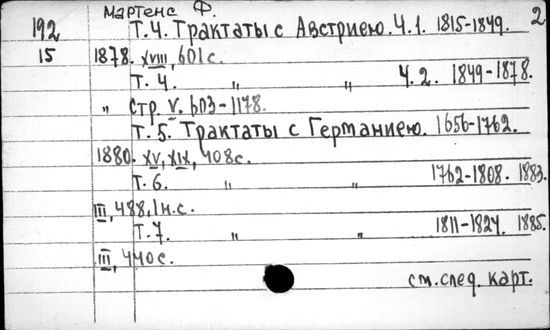 Мартенс Ф. 2
192 Т.4. Трактаты с Австриею. Ч.1. 1815-1849.
15 1878. XVIII, 601 с.
Т. 4. " " Ч. 2. 1849-1878.
" стр. V. 603-1178.
Т. 5. Трактаты с Германиею. 1656-1762.
1880. XV, XIX, 408 с.
Т. 6. " " 1762-1808. 1883.
III, 488, 1 н.с.
Т. 7. " " 1811-1824. 1885.
III, 440 с.
см. след. карт.